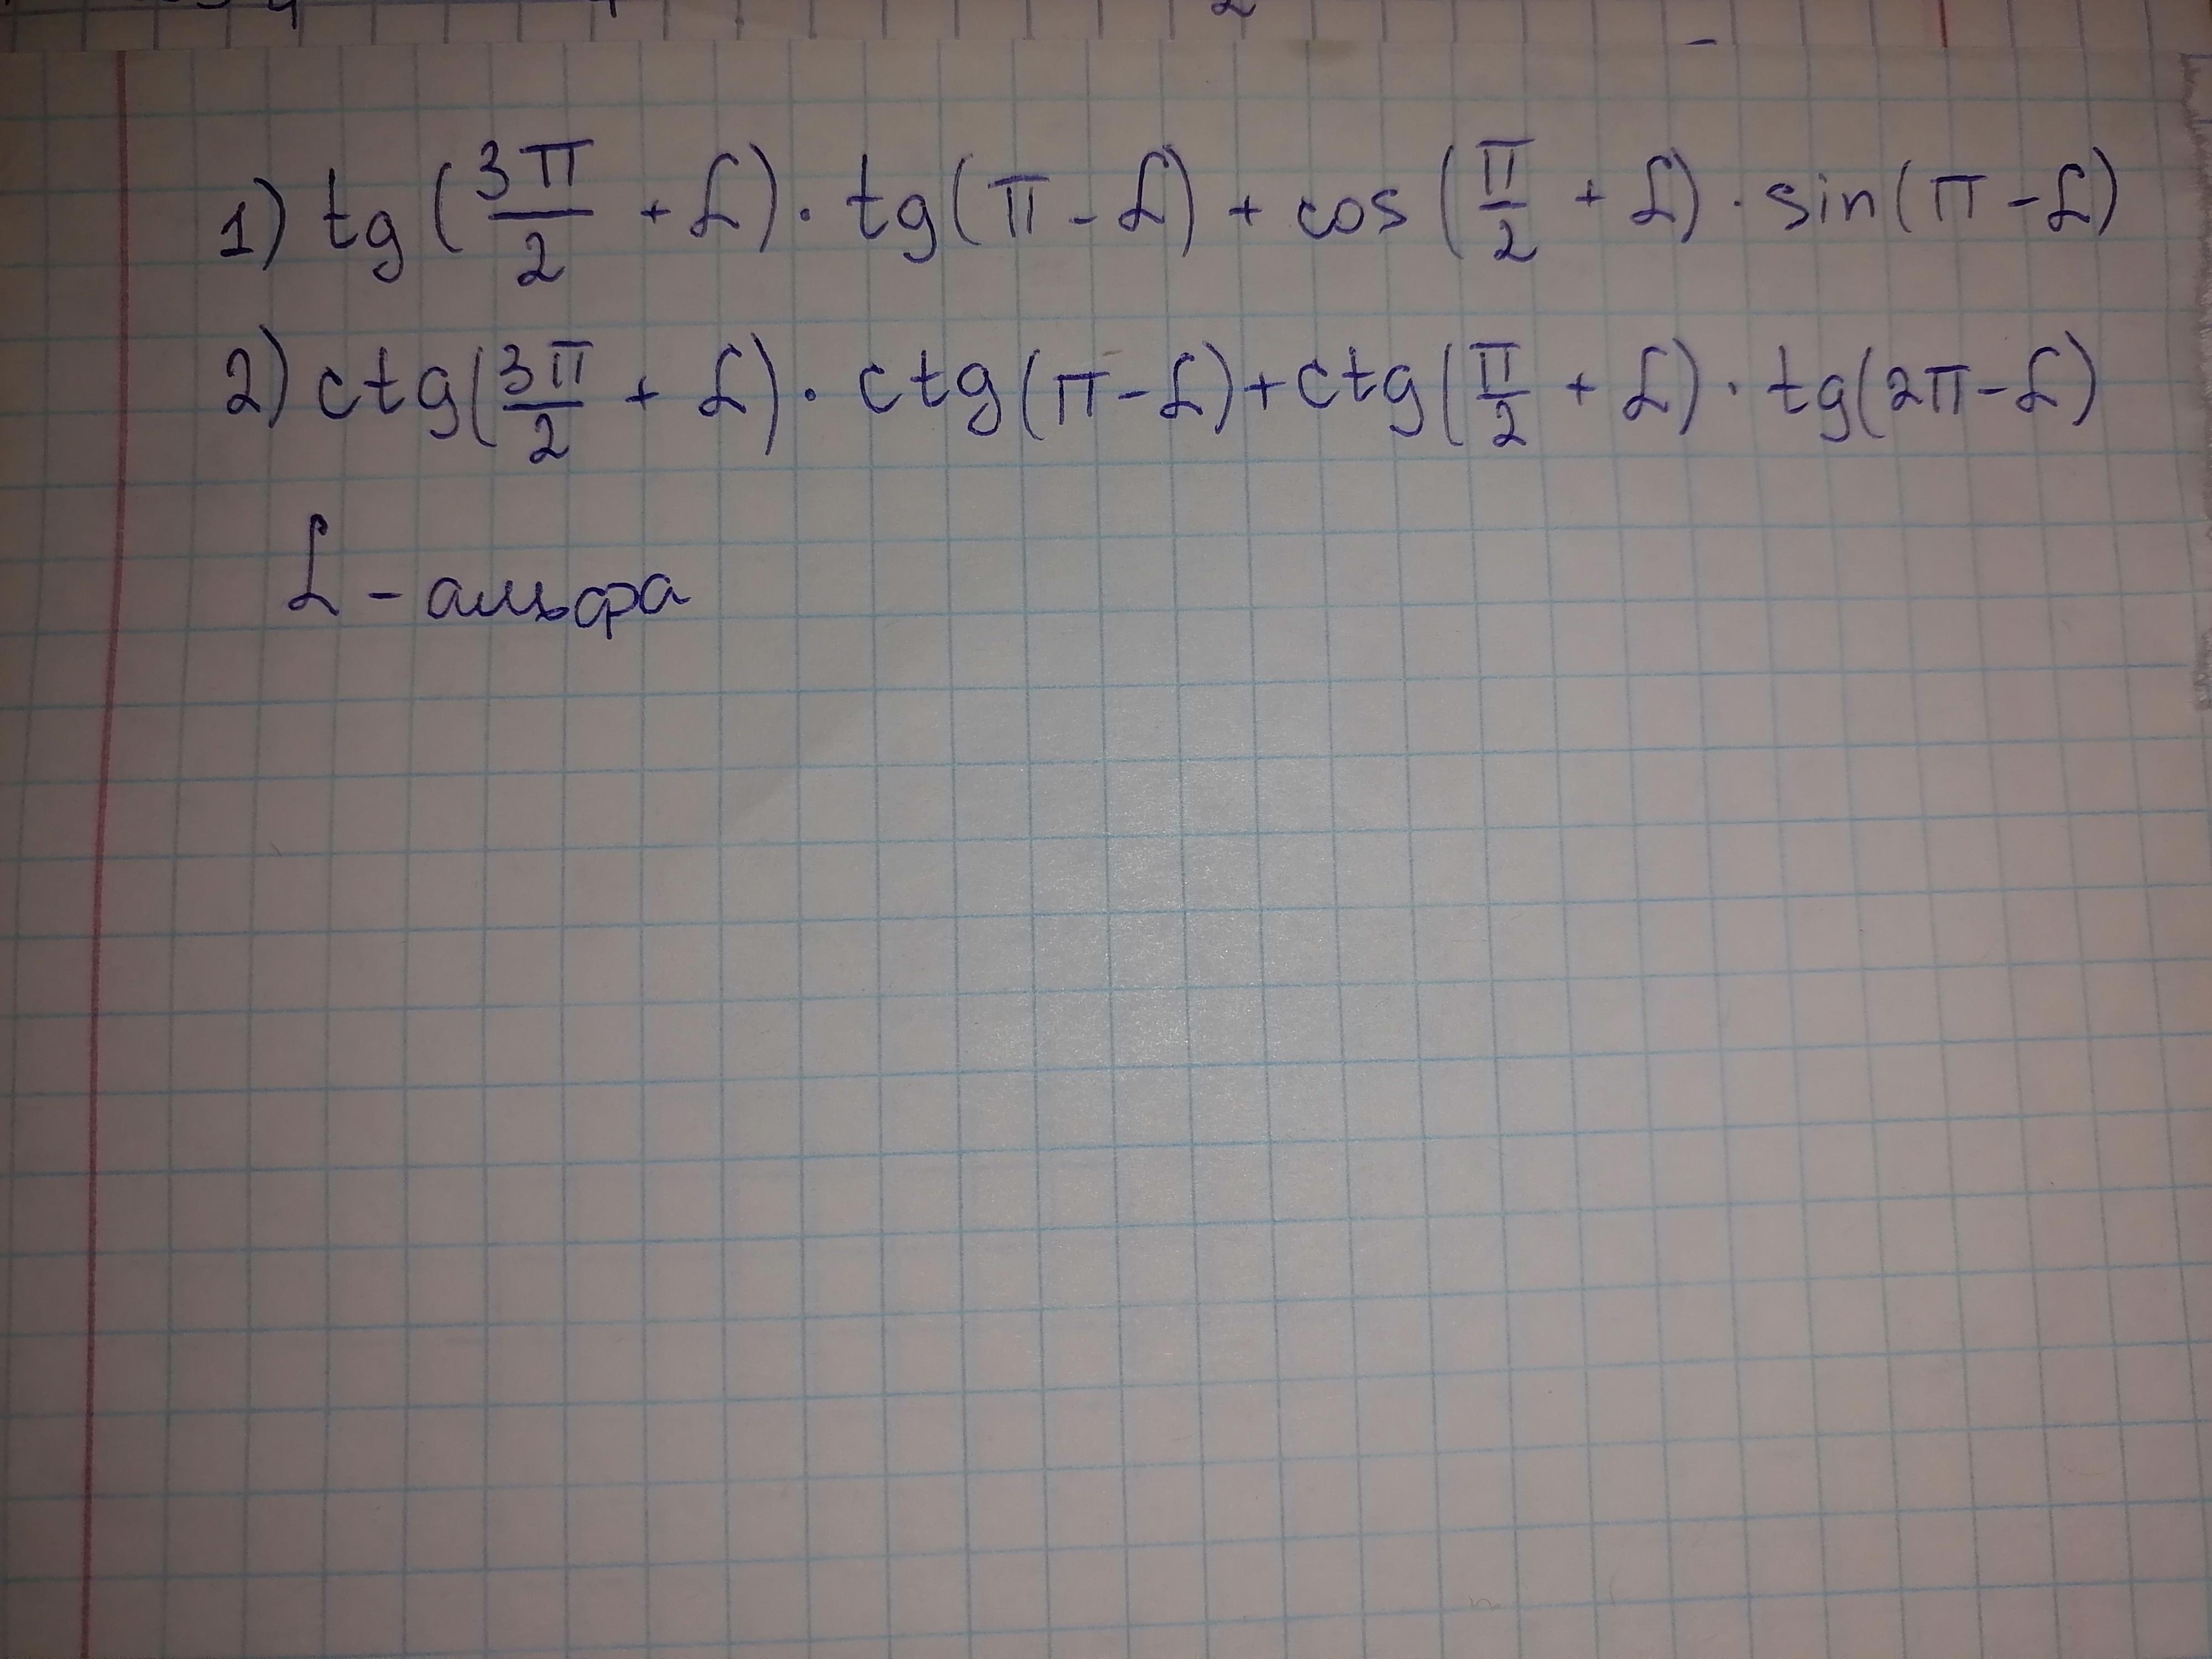 1) tg(3π/2 + £) · tg(π - £) + cos(π/2 + £) · sin(π - £)
2) ctg(3π/2 + £) · ctg(π - £) + ctg(π/2 + £) · tg(2π - £)
£ - альфа